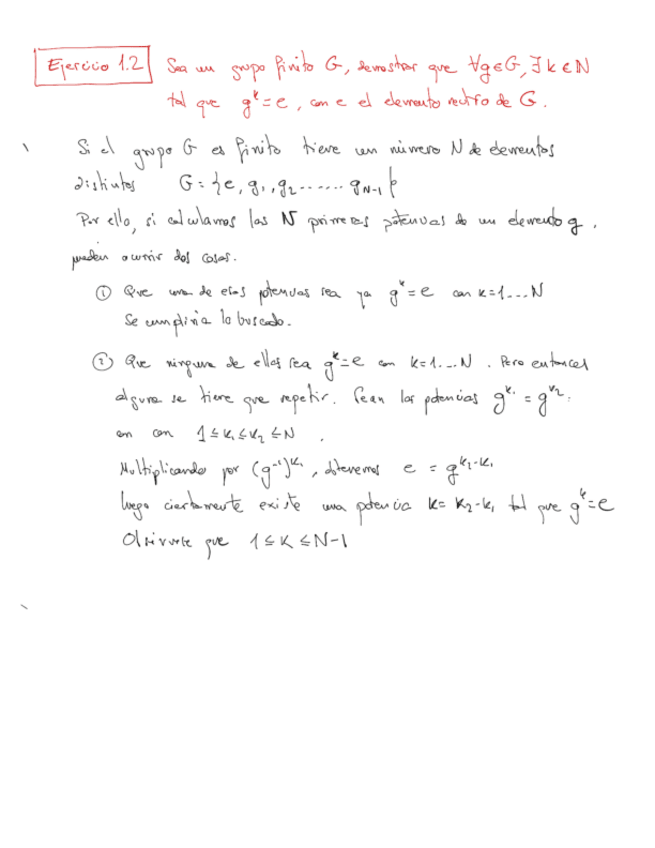 Ejercicio 1.2 Sea un grupo finito G, demostrar que ∀g∈G, ∃ k∈N
tal que g^k = e, con e el elemento neutro de G.
Si el grupo G es finito tiene un número N de elementos
distintos G = {e, g_1, g_2 ...... g_{N-1}}
Por ello, si calculamos las N primeras potencias de un elemento g,
pueden ocurrir dos cosas.
① Que una de esas potencias sea ya g^k = e con k=1...N
Se cumpliría lo buscado.
② Que ninguna de ellas sea g^k = e con k=1...N. Pero entonces
alguna se tiene que repetir. Sean las potencias g^{k_1} = g^{k_2}.
en con 1 ≤ k_1 ≤ k_2 ≤ N.
Multiplicando por (g^{-1})^{k_1}, obtenemos e = g^{k_2-k_1}
luego ciertamente existe una potencia k = k_2-k_1 tal que g^k = e
Obsérvese que 1 ≤ k ≤ N-1